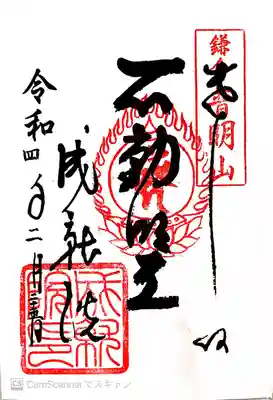 鎌倉普明山
奉拝
不動明王
成就院
令和四年二月
CS CamScanner でスキャン